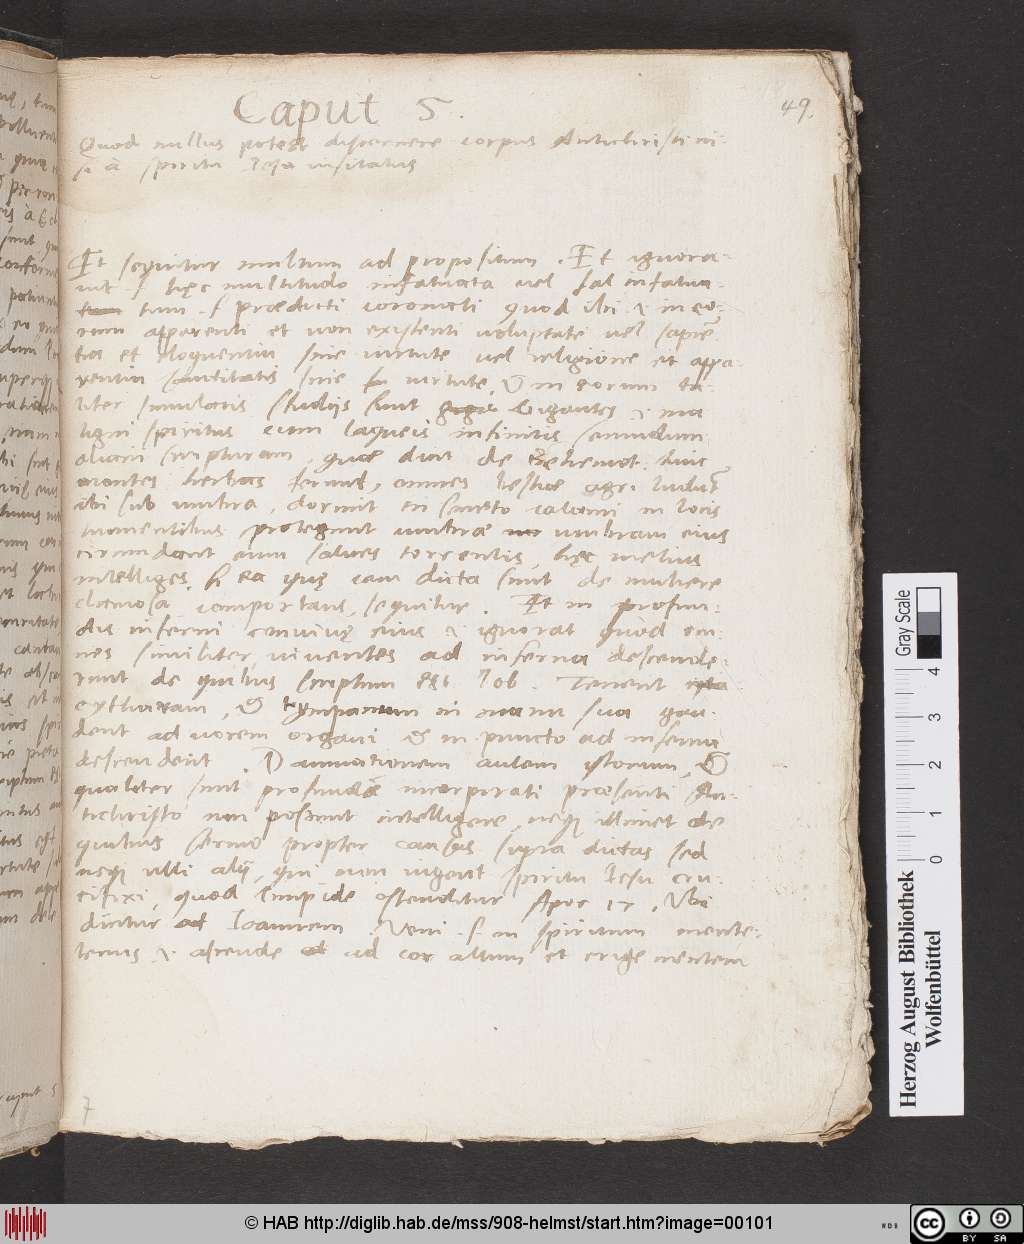 Caput 5.
49.
Quod nullus potest discernere corpus Antichristi ni-
si à spiritu Jesu visitatus
Et sequitur multum ad propositum. Et ignora-
vit .s. hęc multitudo infatuata vel sal infatua-
tum .s. praedicti coronati quod ibi & in eo-
rum apparenti et non existenti voluptate vel sapien
tia et eloquentia sine virtute vel religione et appa-
rentia sanctitatis sine virtute, & in eorum ta-
liter simulatis studijs sunt Gigantes & ma
ligni spiritus cum laqueis infinitis secundum
aliam scripturam, quae dicit de Behemot. huic
montes herbas ferunt, omnes bestiae agri ludunt
ibi sub umbra, dormit in secreto calami in locis
humentibus protegunt umbrae umbram eius
circundant eum salices torrentis, hęc melius
intelliges si ea quę iam dicta sunt de muliere
clamosa comportans, sequitur. Et in profun-
dis inferni convivę eius & ignorat quod om-
nes similiter viventes ad inferna descende-
runt de quibus scriptum est Job. Tenent
cytharam, & tympanum in manu sua gau-
dent ad vocem organi & in puncto ad inferna
descendent. Damnationem autem istorum, &
qualiter sunt profundè incorporati praesenti An-
tichristo non possunt intelligere, neque illimet de
quibus sermo propter causas supra dictas sed
neque ulli alij, qui cum vigent spiritu Iesu cru-
cifixi, quod limpide ostenditur Apoc 17. Ubi
dicitur ad Joannem. Veni .s. in spiritum mente-
tenus & ascende ad cor altum et erige mentem
7
Gray Scale
4
3
2
1
0
Herzog August Bibliothek
Wolfenbüttel
© HAB http://diglib.hab.de/mss/908-helmst/start.htm?image=00101
WDB
cc
BY SA